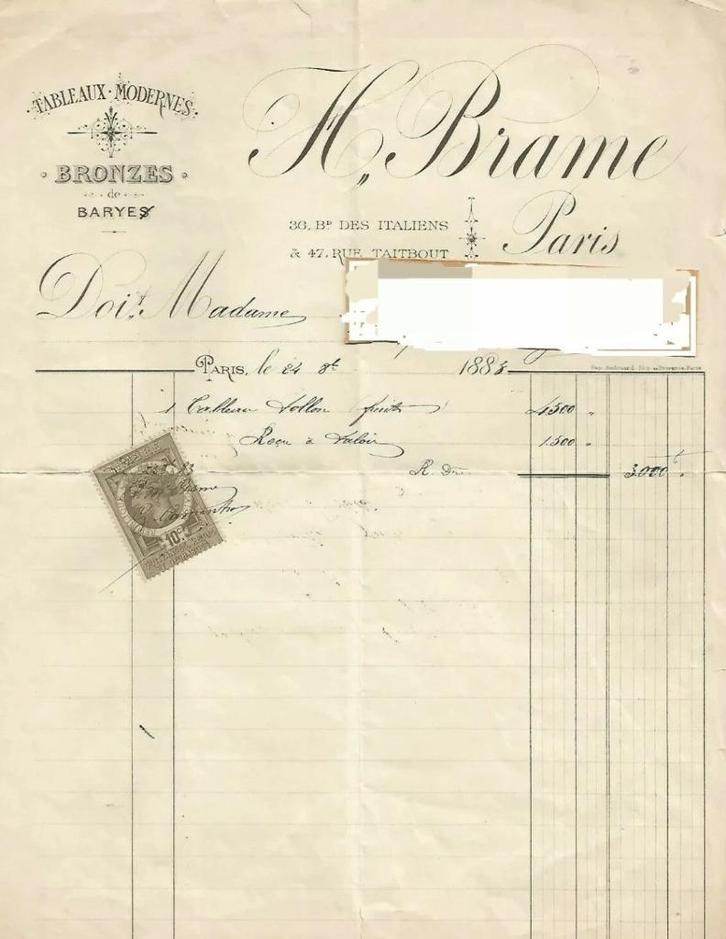 TABLEAUX · MODERNES
BRONZES
de
BARYES
H. Brame
36, Bd DES ITALIENS
& 47, RUE TAITBOUT
Paris
Doit Madame
PARIS, le 24 8bre 1883
1 Tableau Vollon fruits 4500 "
Reçu à Valoir 1500 "
R. Dû 3000 f "
10c